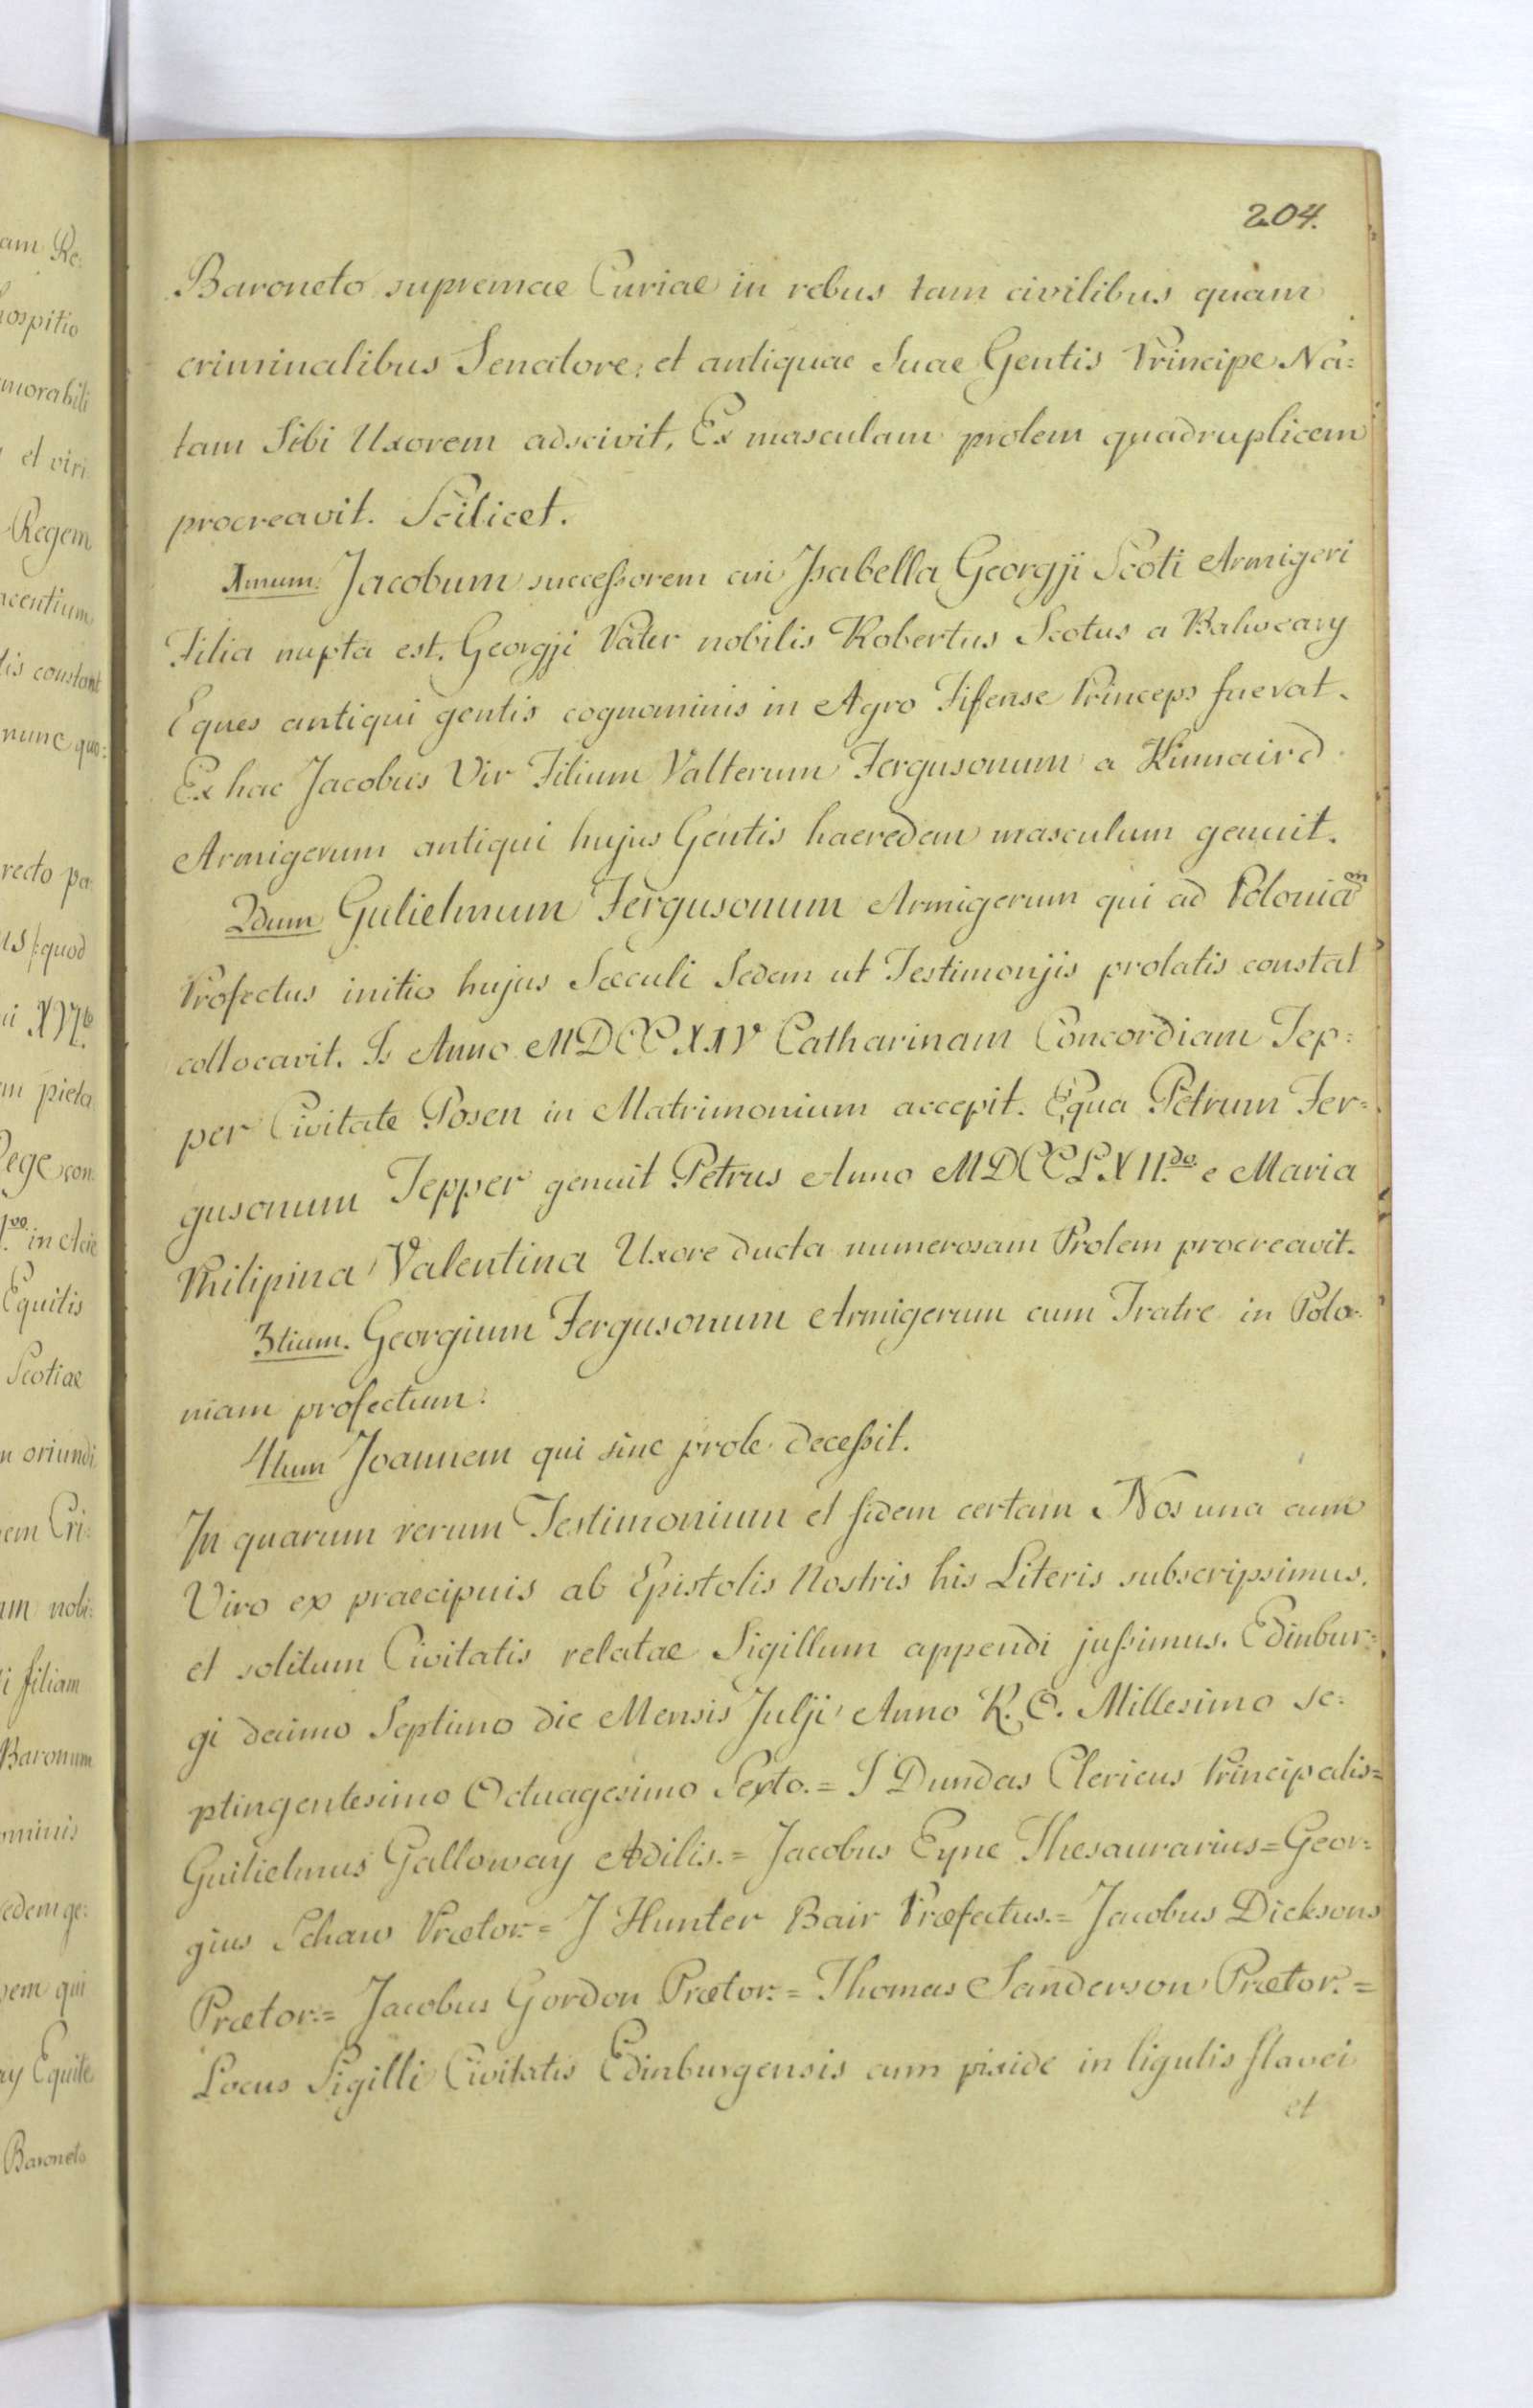 204.
Baroneto supremae Curiae in rebus tam civilibus quam
criminalibus Senatore, et antiquae Suae Gentis Principe Na=
tam Sibi Uxorem adscivit. Ex masculam prolem quadruplicem
procreavit. Scilicet.
1mum. Jacobum successorem cui Isabella Georgji Scoti Armigeri
Filia nupta est. Georgji Pater nobilis Robertus Scotus a Balweary
Eques antiqui gentis cognominis in Agro Fifense Princeps fuerat.
Ex hac Jacobus Vir Filium Valterum Fergusonum a Kinnaird
Armigerum antiqui hujus Gentis haeredem masculum genuit.
2dum Gulielmum Fergusonum Armigerum qui ad Poloniam
Profectus initio hujus Sæculi Sedem ut Testimonjis prolatis constat
collocavit. Is Anno MDCCXXV Catharinam Concordiam Tep=
per Civitate Posen in Matrimonium accepit. E qua Petrum Fer=
gusonum Tepper genuit Petrus Anno MDCCLXII.do e Maria
Philipina Valentina Uxore ducta numerosam Prolem procreavit.
3tium. Georgium Fergusonum Armigerum cum Fratre in Polo=
niam profectum.
4tum Joannem qui sine prole decessit.
In quarum rerum Testimonium et fidem certam Nos una cum
Viro ex praecipuis ab Epistolis Nostris his Literis subscripsimus.
et solitum Civitatis relatae Sigillum appendi jussimus. Edinbur=
gi decimo Septimo die Mensis Julji Anno R. O. Millesimo se=
ptingentesimo Octuagesimo Sexto. = J Dundas Clericus Principalis=
Guilielmus Galloway Ædilis. = Jacobus Eyne Thesaurarius = Geor=
gius Schaw Prætor. = J Hunter Bair Præfectus. = Jacobus Dicksons
Prætor. = Jacobus Gordon Prætor. = Thomas Sanderson Prætor. =
Locus Sigilli Civitatis Edinburgensis cum pixide in ligulis flavei
et